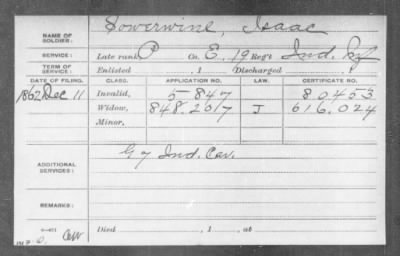 NAME OF SOLDIER: Sowerwine, Isaac
SERVICE: Late rank P Co. E. 19 Reg't Ind. Inf
TERM OF SERVICE: Enlisted , 1 Discharged , 1
DATE OF FILING. CLASS. APPLICATION NO. LAW. CERTIFICATE NO.
1862 Dec 11 Invalid, 5847 80453
Widow, 848.267 J 616.024
Minor,
ADDITIONAL SERVICES: G 7 Ind. Cav.
REMARKS:
Died , 1 , at